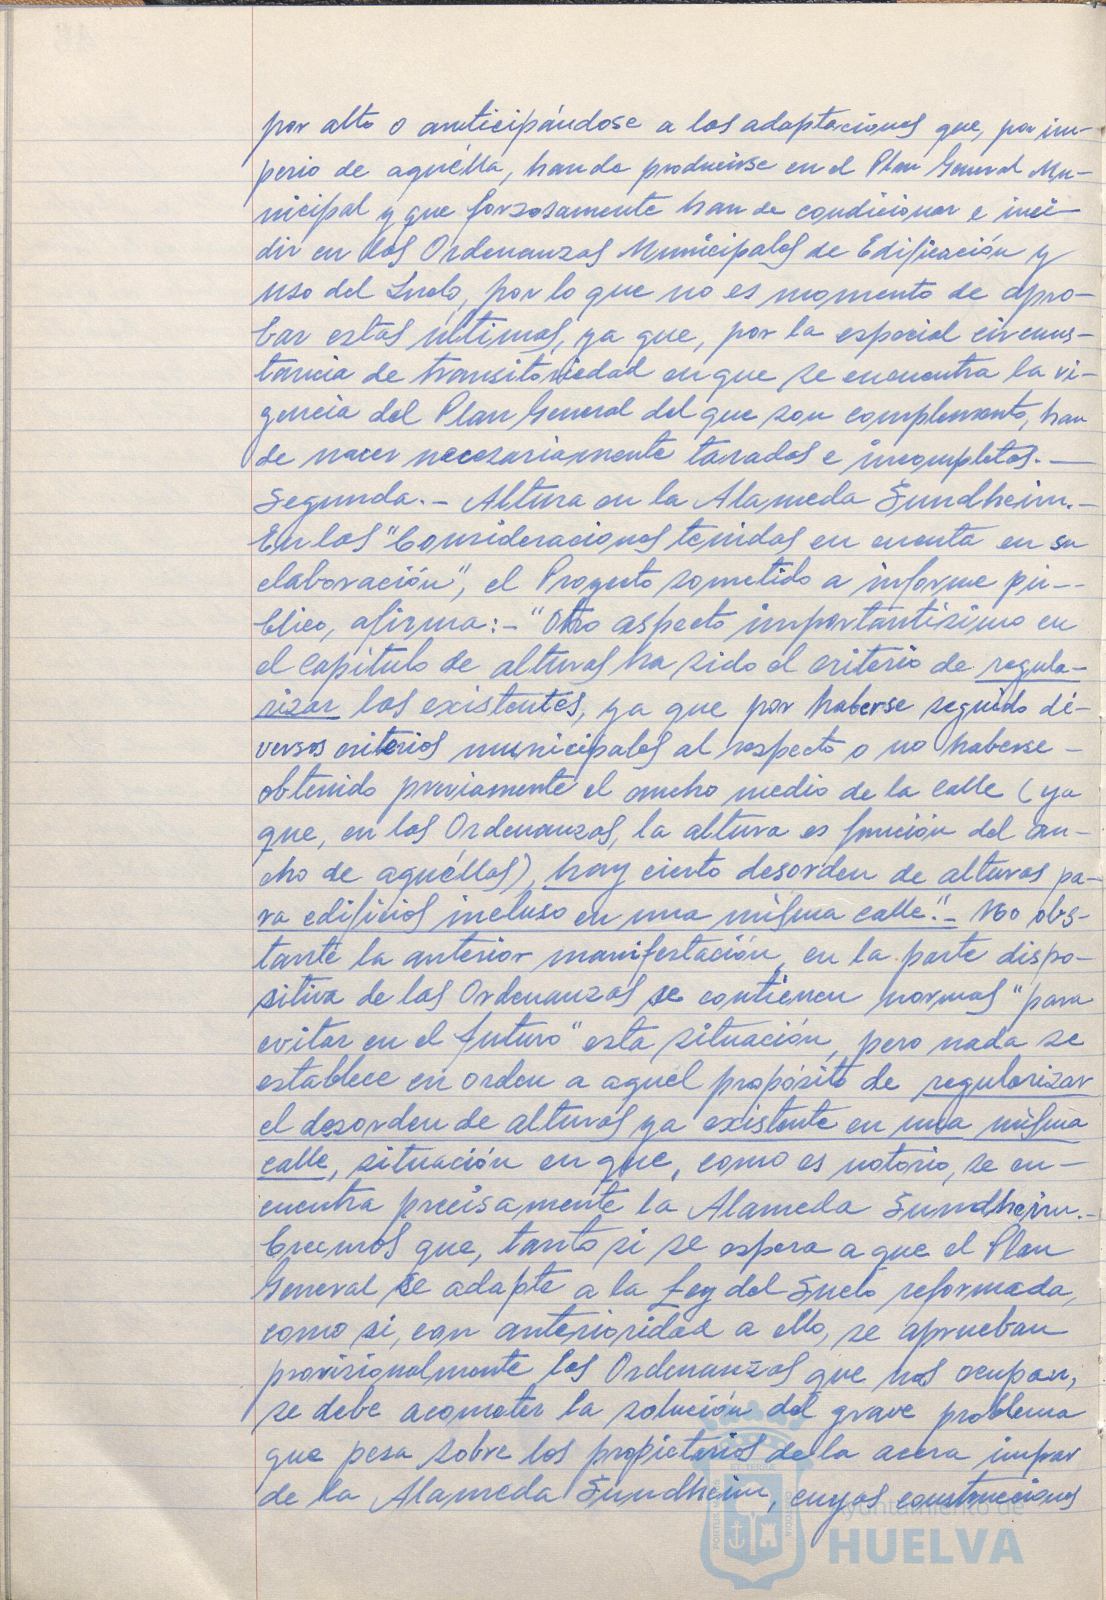 por alto o anticipándose a las adaptaciones que, por im-
perio de aquélla, han de producirse en el Plan General Mu-
nicipal y que forzosamente han de condicionar e inci-
dir en las Ordenanzas Municipales de Edificación y
Uso del Suelo, por lo que no es momento de apro-
bar estas últimas, ya que, por la especial circuns-
tancia de transitoriedad en que se encuentra la vi-
gencia del Plan General del que son complemento, han
de nacer necesariamente taradas e incompletas.-
Segunda.- Altura en la Alameda Sundheim.-
En las "Consideraciones tenidas en cuenta en su
elaboración", el Proyecto sometido a informe pú--
blico, afirma:- "Otro aspecto importantísimo en
el capítulo de alturas ha sido el criterio de regula-
rizar las existentes, ya que por haberse seguido di-
versos criterios municipales al respecto o no haberse -
obtenido previamente el ancho medio de la calle (ya
que, en las Ordenanzas, la altura es función del an-
cho de aquéllas), hay cierto desorden de alturas pa-
ra edificios incluso en una misma calle."- No obs-
tante la anterior manifestación, en la parte dispo-
sitiva de las Ordenanzas se contienen normas "para
evitar en el futuro" esta situación, pero nada se
establece en orden a aquel propósito de regularizar
el desorden de alturas ya existente en una misma
calle, situación en que, como es notorio, se en-
cuentra precisamente la Alameda Sundheim.-
Creemos que, tanto si se espera a que el Plan
General se adapte a la Ley del Suelo reformada,
como si, con anterioridad a ello, se aprueban
provisionalmente las Ordenanzas que nos ocupan,
se debe acometer la solución del grave problema
que pesa sobre los propietarios de la acera impar
de la Alameda Sundheim, cuyas construcciones
Ayuntamiento de
HUELVA